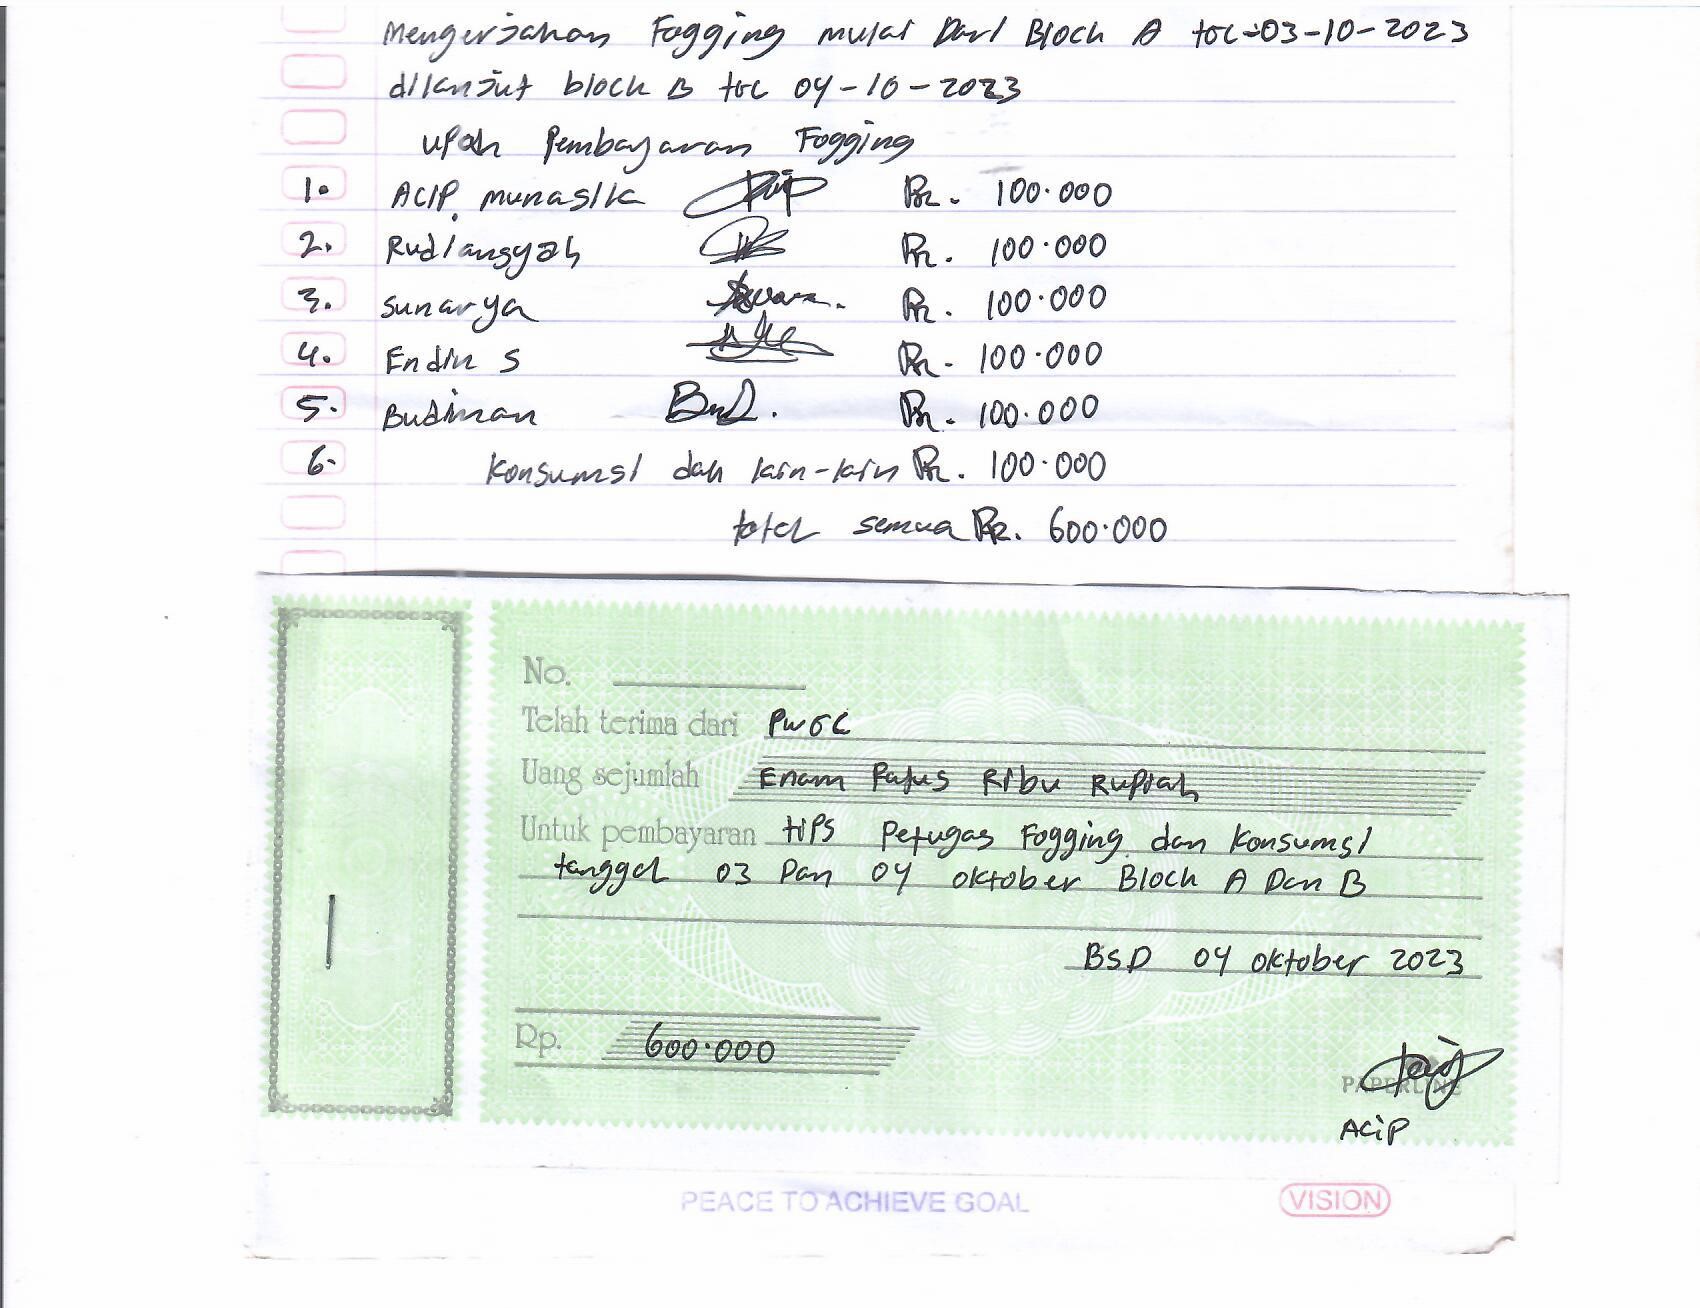 Mengerjakan Fogging mulai Dari Block A tgl=03-10-2023
dilanjut block B tgl 04-10-2023
upah Pembayaran Fogging
1. ACIP. munasik Rp. 100.000
2. Rudiansyah Rp. 100.000
3. Sunarya Rp. 100.000
4. Endin S Rp. 100.000
5. Budiman Bud. Rp. 100.000
6. Konsumsi dan lain-lain Rp. 100.000
total semua Rp. 600.000
No.
Telah terima dari PWGC
Uang sejumlah Enam Ratus Ribu Rupiah
Untuk pembayaran tips Petugas Fogging dan Konsumsi
tanggal 03 Dan 04 oktober Block A Dan B
BSD 04 oktober 2023
Rp. 600.000
PAPERLINE
ACiP
PEACE TO ACHIEVE GOAL VISION